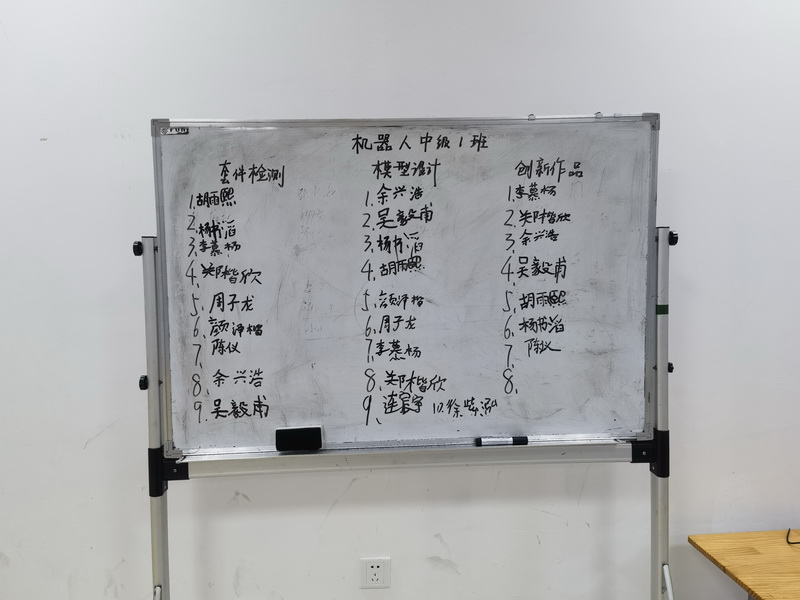 机器人中级1班
套件检测
1.胡雨熙
2.杨书滔
3.李慕杨
4.郑楷欣
5.周子龙
6.颜译楷
7.陈仪
8.余兴浩
9.吴毅甫
模型设计
1.余兴浩
2.吴毅甫
3.杨书滔
4.胡雨熙
5.颜译楷
6.周子龙
7.李慕杨
8.郑楷欣
9.连宸宇 10.徐
创新作品
1.李慕杨
2.郑楷欣
3.余兴浩
4.吴毅甫
5.胡雨熙
6.杨书滔
7.陈仪
8.